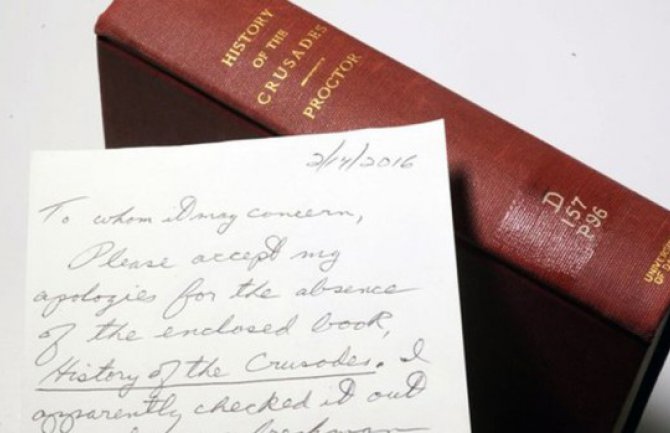 HISTORY
OF THE
CRUSADES
PROCTOR
D
157
P96
2/14/2016
To whom it may concern,
Please accept my
apologies for the absence
of the enclosed book,
History of the Crusades. I
apparently checked it out
freshman